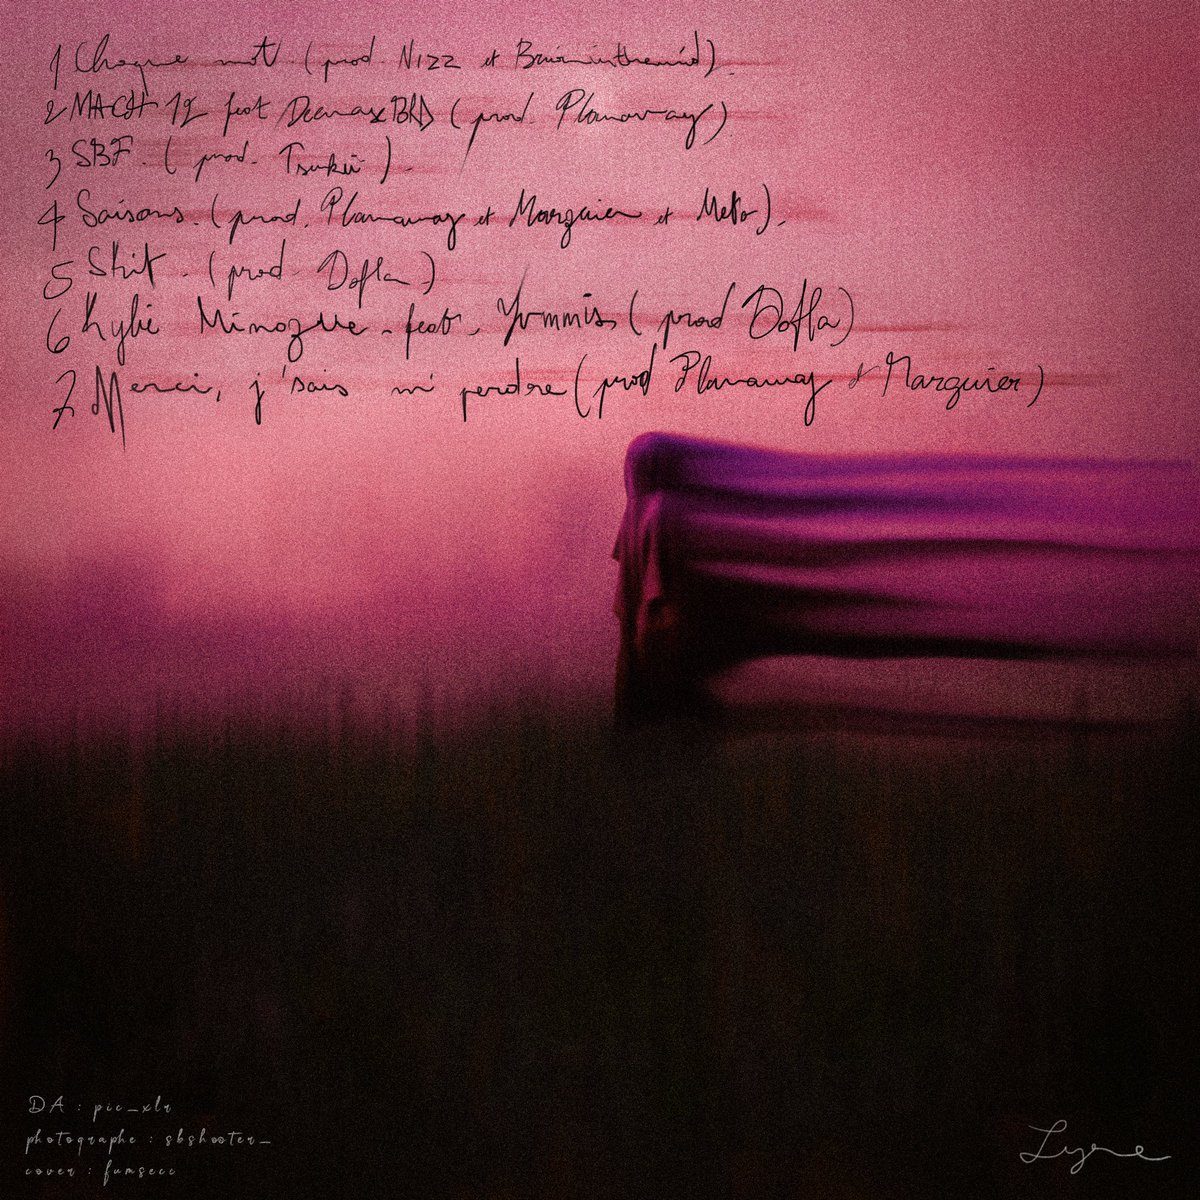 1 Chaque mot (prod. Nizz et
2 MACH 12 feat (prod. Planaway)
3 SBF. (prod. Tsukii).
4 Saisons. (prod. Planaway et Marguier et Meto).
5 Skit. (prod Dofla)
6 Kylie Minogue. feat. Yvmmis (prod Dofla)
7 Merci, j'sais m'perdre (prod Planaway et Marguier)
DA : pic_xlr
photographe : sbshooter_
cover : fumsecc
Lyre